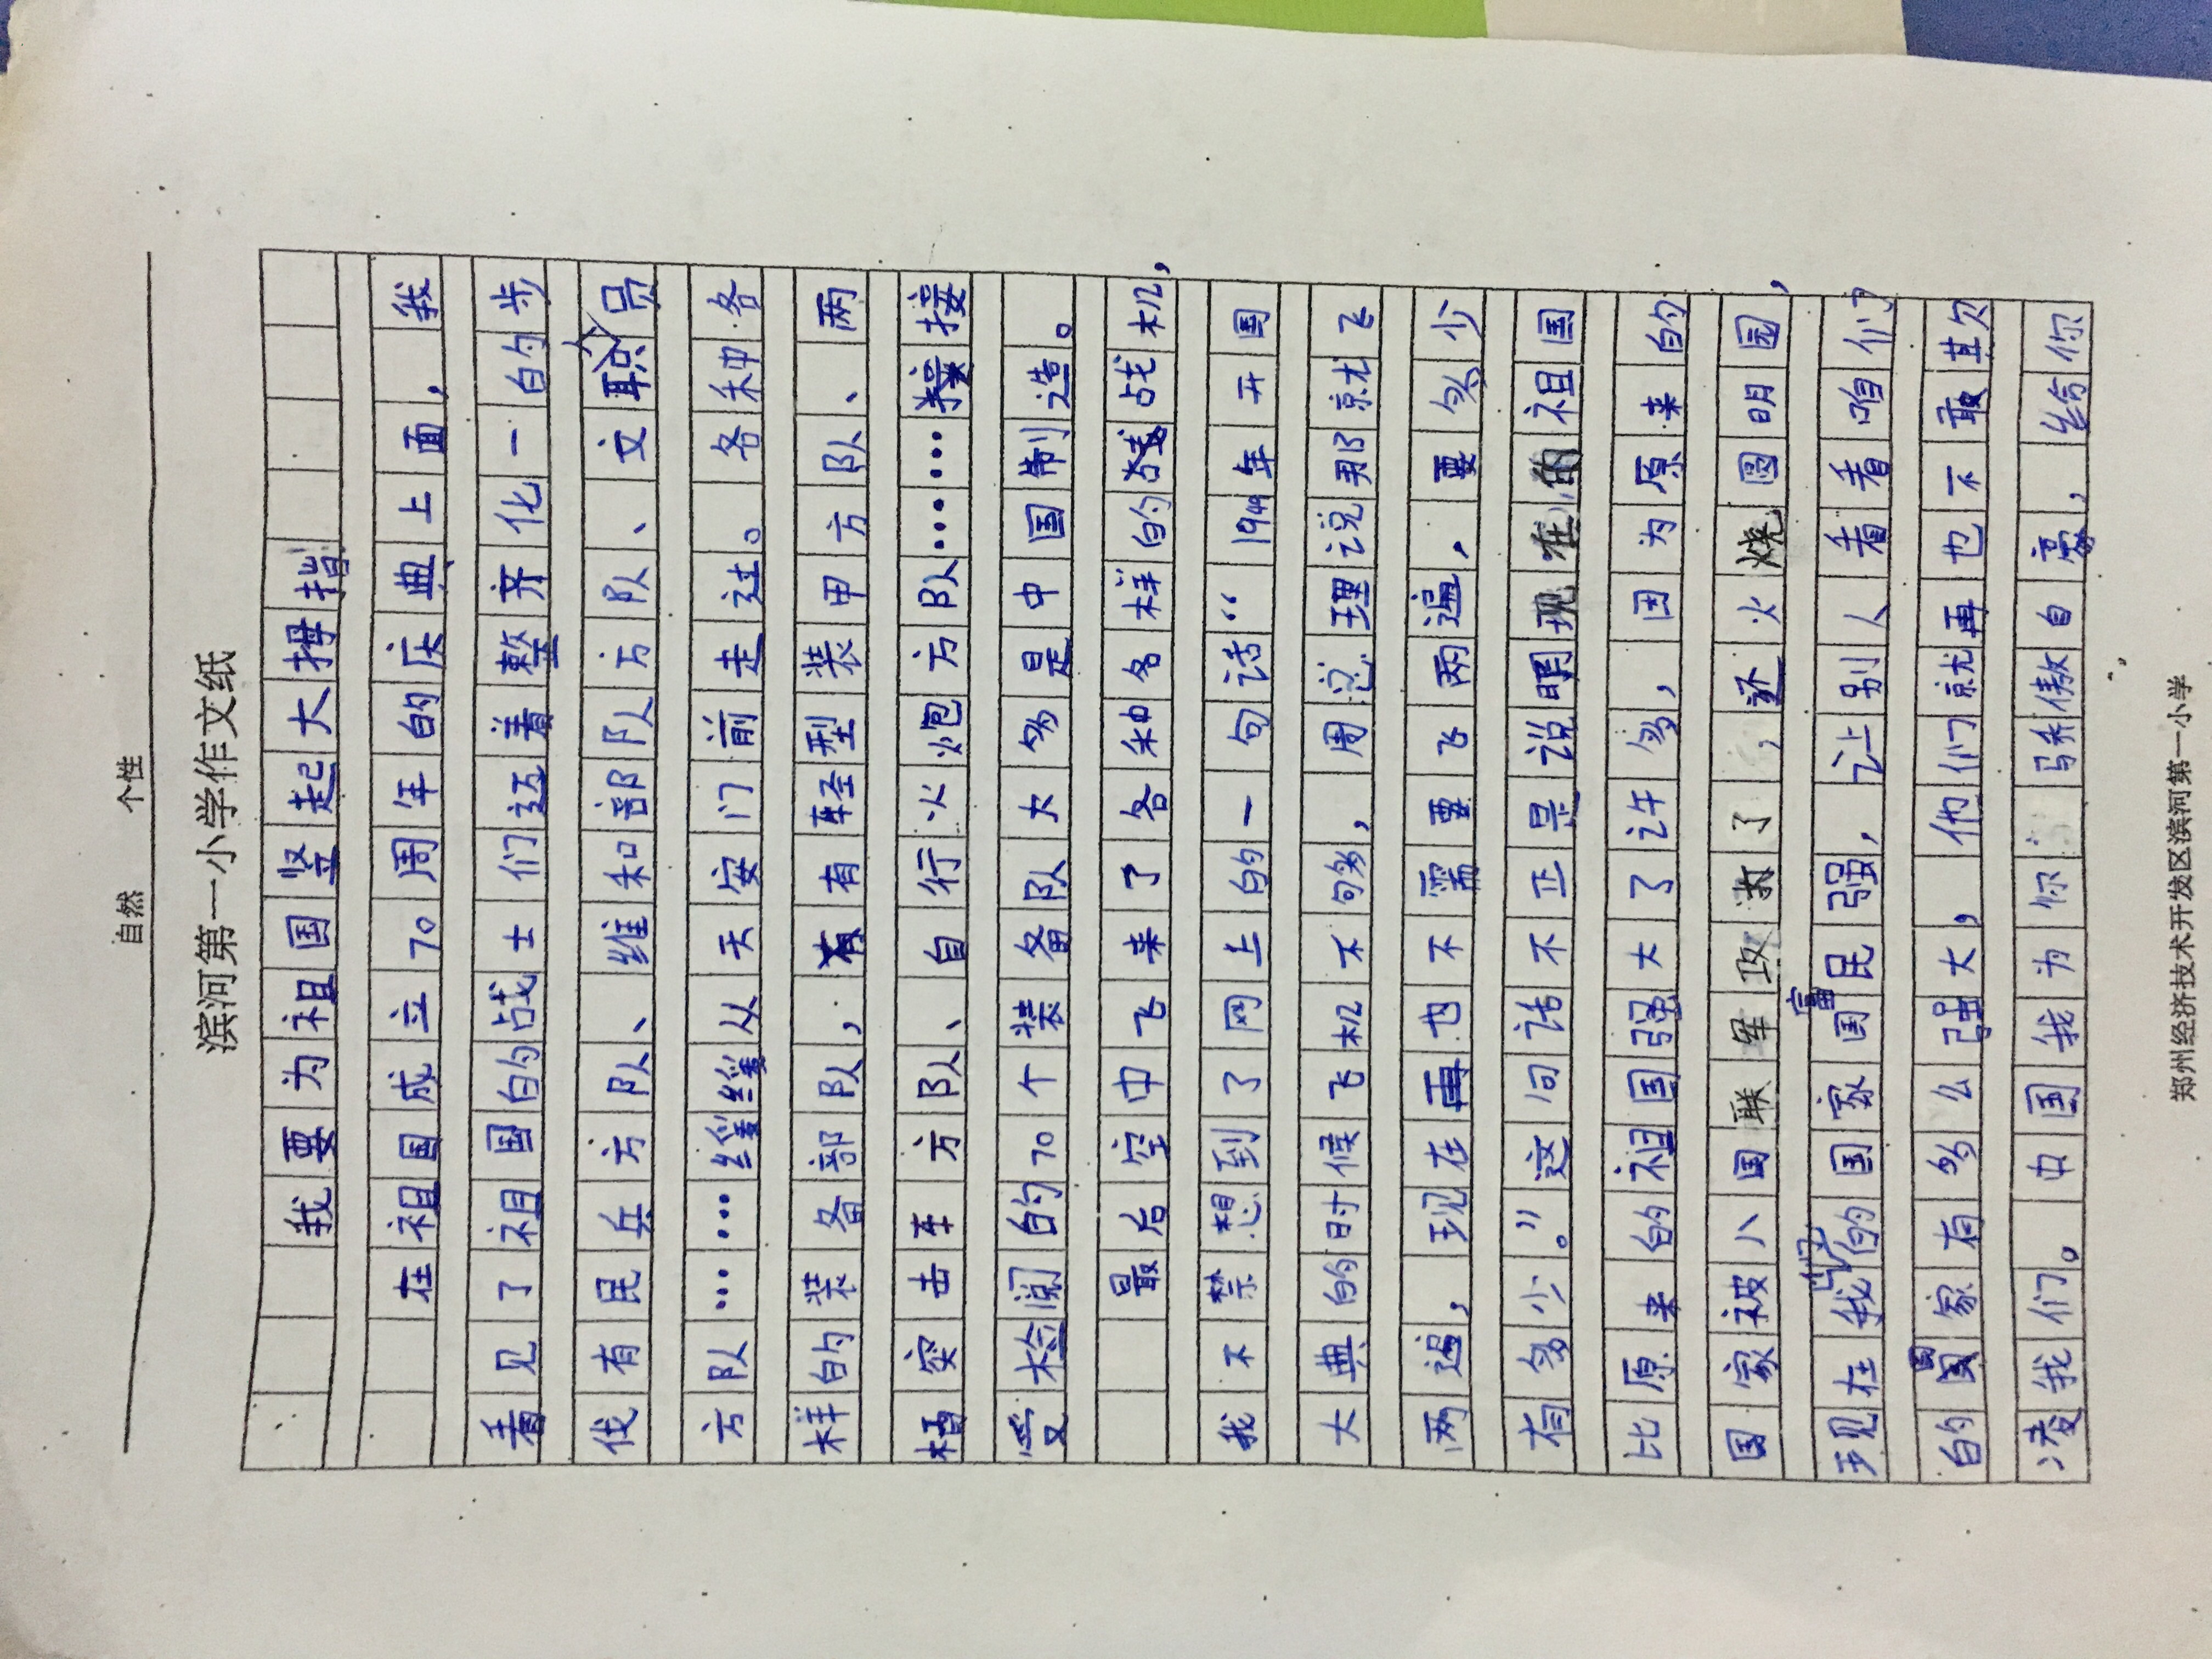 自然 个性
滨河第一小学作文纸
我要为祖国竖起大拇指
在祖国成立70周年的庆典上面，我
看见了祖国的战士们迈着整齐化一的步
伐有民兵方队、维和部队方队、文职人员
方队……缓缓从天安门前走过。各种各
样的装备部队，有轻型装甲方队、两
栖突击车方队、自行火炮方队……接
受检阅的70个装备队大多是中国制造。
最后空中飞来了各种各样的战机，
我不禁想到了网上的一句话“1949年开国
大典的时候飞机不够，周总理说那就飞
两遍，现在再也不需要飞两遍，要多少
有多少。”这句话不正是说明现在的祖国
比原来的祖国强大了许多，因为原来的
国家被八国联军攻打了，还火烧圆明园，
现在我们的国家国富民强，让别人看看咱们
的国家有多么强大，他们就再也不敢欺
凌我们。中国我为你骄傲自豪，给你
郑州经济技术开发区滨河第一小学